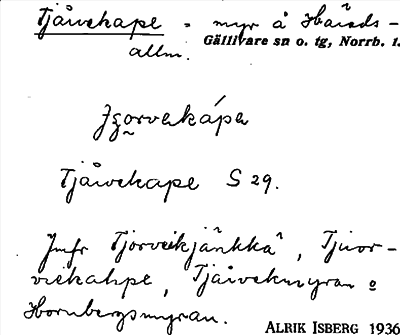 Tjåivekape - myr å Härads-
allm.
Gällivare sn o. tg, Norrb. l.
Tjåivekape S 29.
Jmfr Tjorveikjänkkä, Tjuor-
viekahpe, Tjåivekmyran o
Hornbergsmyran.
ALRIK ISBERG 1936